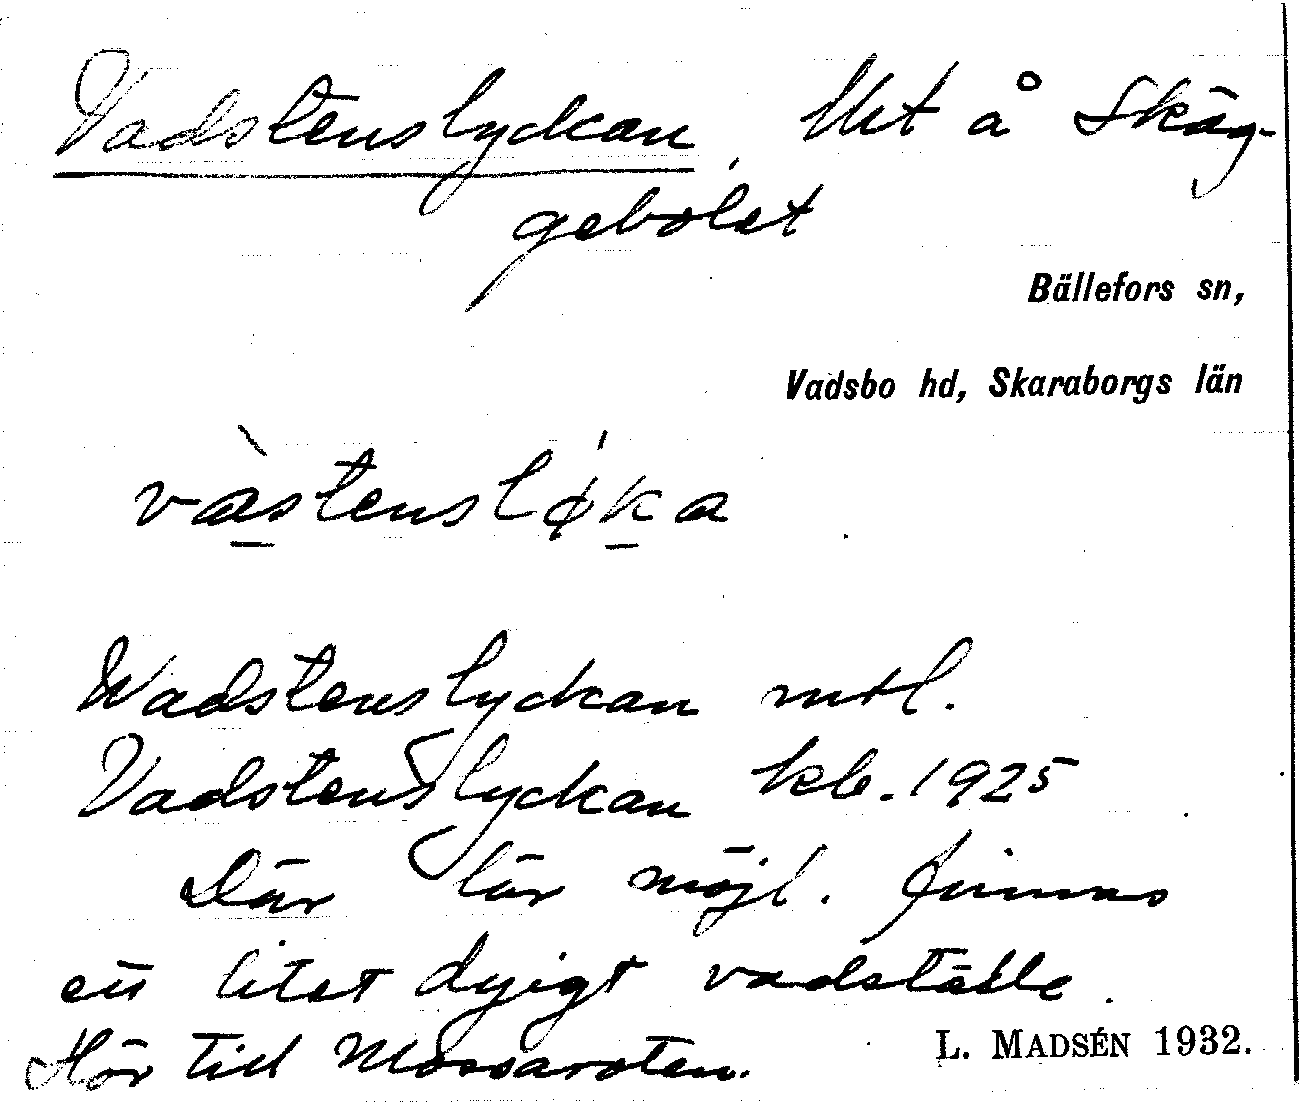 Vadstenslyckan, Utt å Skäg-
gebolet
Bällefors sn,
Vadsbo hd, Skaraborgs län
vàstenslǿka
Wadstenslyckan mtl.
Vadstenslyckan kb. 1925
Där lär möjl. finnas
ett litet dyigt vadställe.
Hör till Mossaroten.
L. MADSÉN 1932.